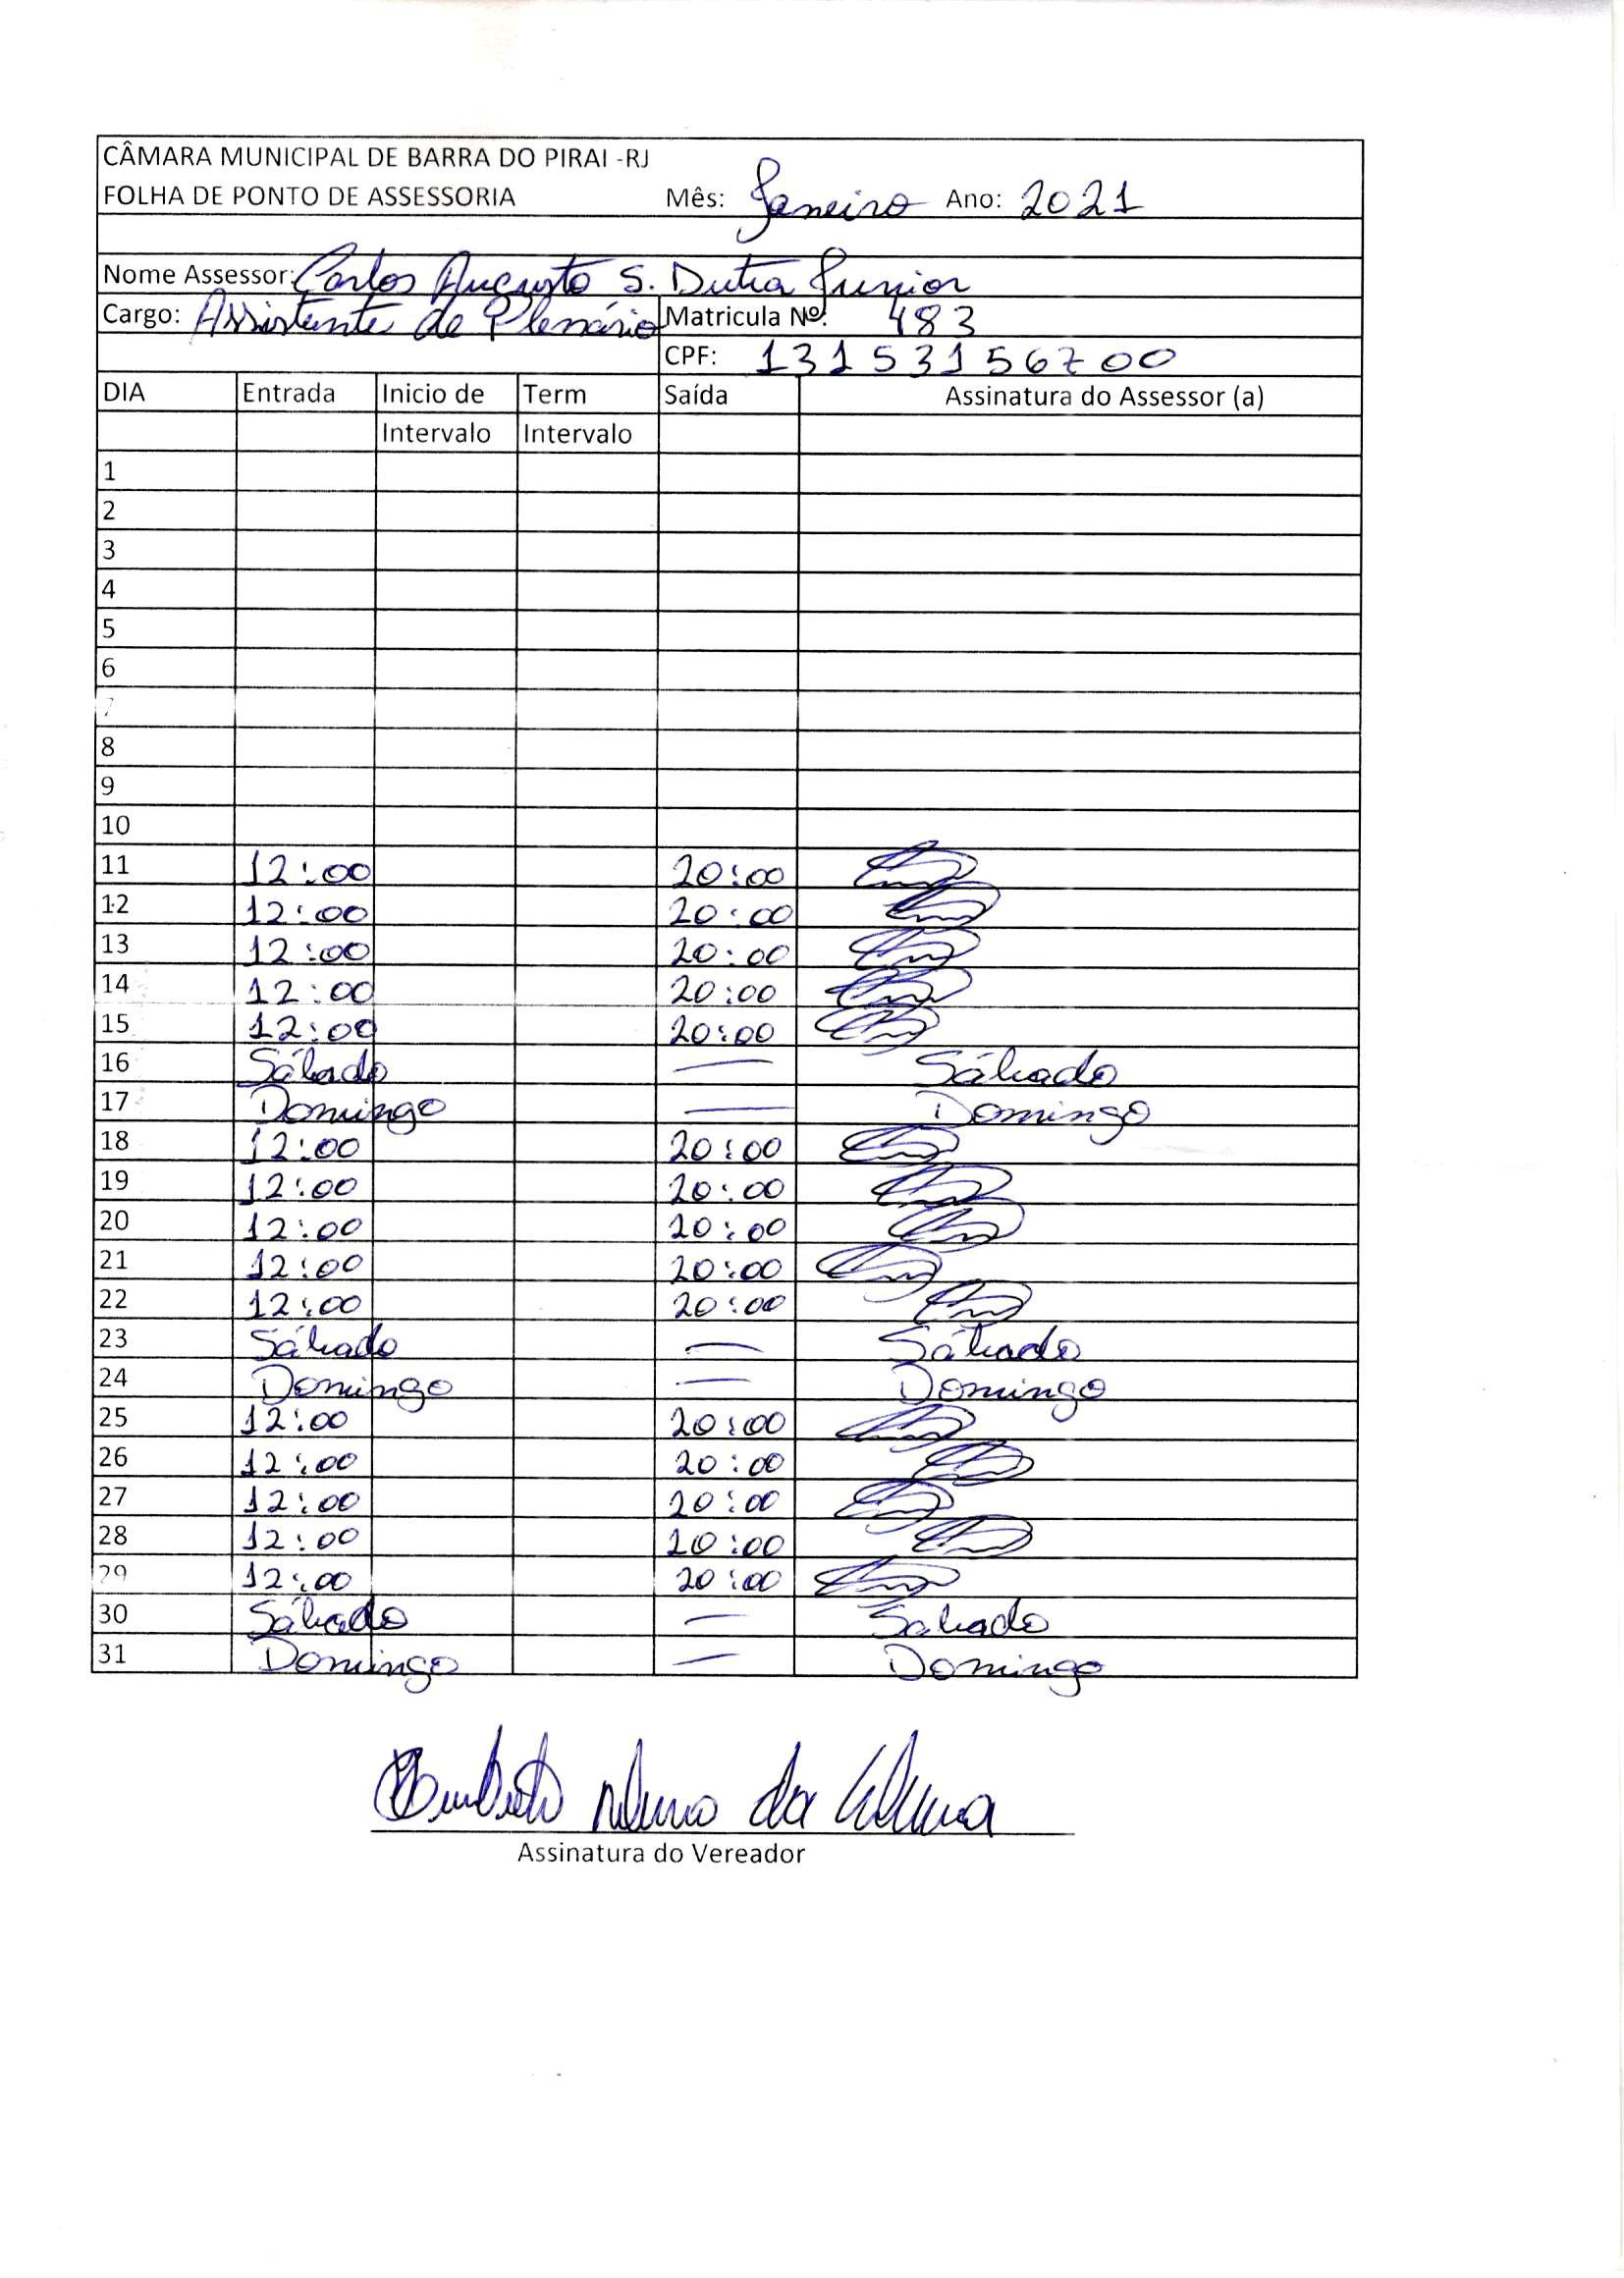 CÂMARA MUNICIPAL DE BARRA DO PIRAI -RJ
FOLHA DE PONTO DE ASSESSORIA Mês: Janeiro Ano: 2021
Nome Assessor: Carlos Augusto S. Dutra Junior
Cargo: Assistente de Plenário Matricula Nº: 483
CPF: 13153156700
DIA Entrada Inicio de Term Saída Assinatura do Assessor (a)
Intervalo Intervalo
1
2
3
4
5
6
7
8
9
10
11 12:00 20:00
12 12:00 20:00
13 12:00 20:00
14 12:00 20:00
15 12:00 20:00
16 Sábado — Sábado
17 Domingo — Domingo
18 12:00 20:00
19 12:00 20:00
20 12:00 20:00
21 12:00 20:00
22 12:00 20:00
23 Sábado — Sábado
24 Domingo — Domingo
25 12:00 20:00
26 12:00 20:00
27 12:00 20:00
28 12:00 20:00
29 12:00 20:00
30 Sábado — Sabado
31 Domingo — Domingo
da
Assinatura do Vereador